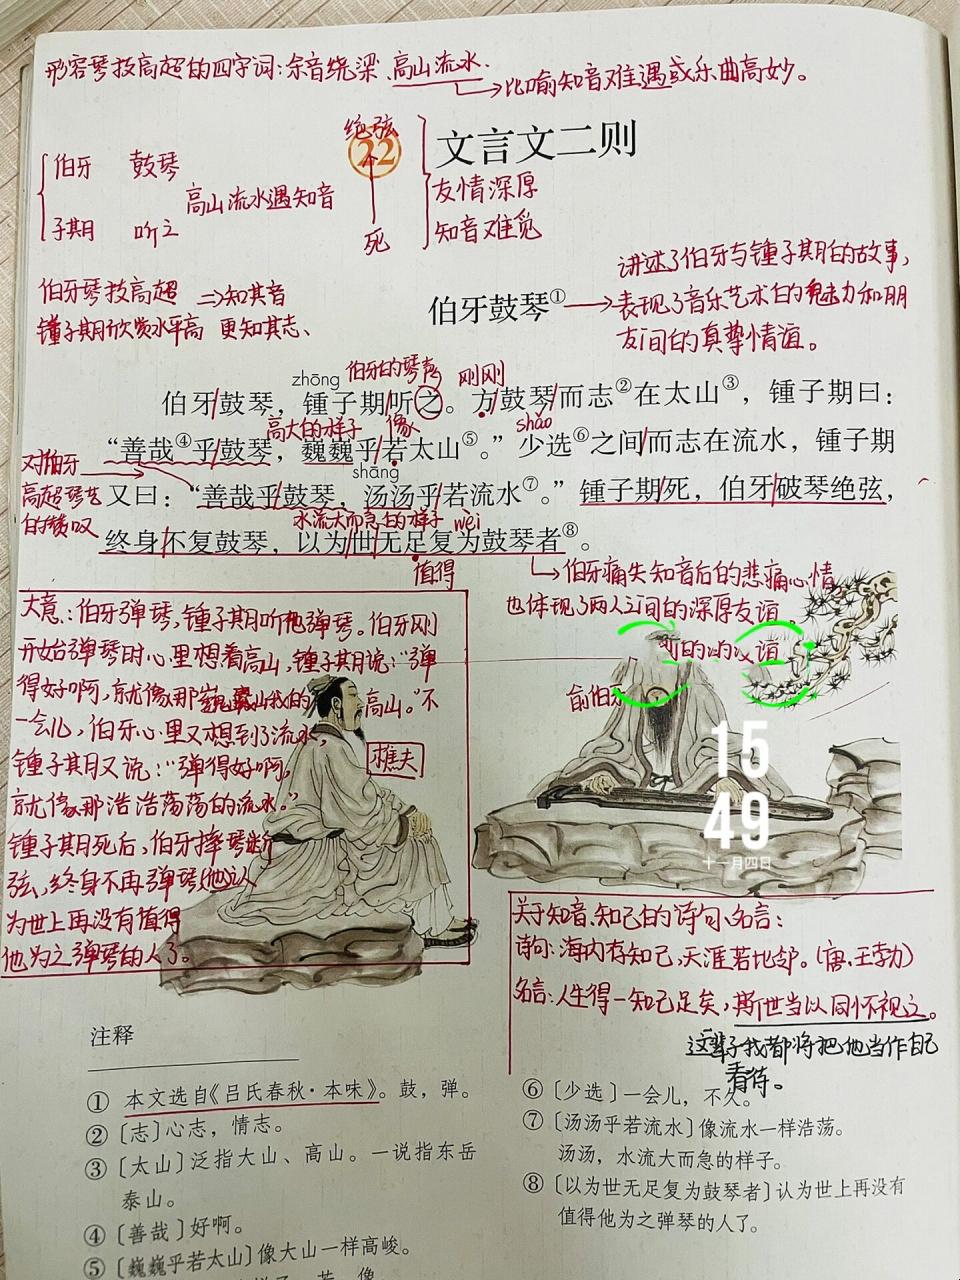 形容琴技高超的四字词:余音绕梁、高山流水.
→比喻知音难遇或乐曲高妙。
绝弦
22
文言文二则
伯牙 鼓琴
子期 听之
高山流水遇知音
死
友情深厚
知音难觅
伯牙琴技高超 ⇒知其音
锺子期欣赏水平高 更知其志、
伯牙鼓琴①
讲述了伯牙与锺子期的故事,
表现了音乐艺术的魅力和朋
友间的真挚情谊。
zhōng 伯牙的琴声 刚刚
伯牙/鼓琴,锺子期/听之。方/鼓琴/而志②在太山③,锺子期曰:
高大的样子 像 shǎo
“善哉④乎/鼓琴,巍巍乎/若太山⑤。”少选⑥之间/而志在流水,锺子期
shāng
又曰:“善哉乎/鼓琴,汤汤乎/若流水⑦。”锺子期/死,伯牙/破琴绝弦,
水流大而急的样子 wèi
终身/不复鼓琴,以为/世/无足复为鼓琴者⑧。
值得
对伯牙
高超琴艺
的赞叹
→伯牙痛失知音后的悲痛心情
也体现了两人之间的深厚友谊。
大意:伯牙弹琴,锺子期听他弹琴。伯牙刚
开始弹琴时心里想着高山,锺子期说:“弹
得好啊,就像那巍巍 高山。”不
一会儿,伯牙心里又想到了流水,
锺子期又说:“弹得好啊,
就像那浩浩荡荡的流水。”
锺子期死后,伯牙摔琴断
弦,终身不再弹琴,他认
为世上再没有值得
他为之弹琴的人了。
樵夫
俞伯牙
15
49
十一月四日
关于知音、知己的诗句、名言:
诗句:海内存知己,天涯若比邻。(唐.王勃)
名言:人生得一知己足矣,斯世当以同怀视之。
这辈子我都将把他当作自己
看待。
注释
① 本文选自《吕氏春秋·本味》。鼓,弹。
②〔志〕心志,情志。
③〔太山〕泛指大山、高山。一说指东岳
泰山。
④〔善哉〕好啊。
⑤〔巍巍乎若太山〕像大山一样高峻。
若,像
⑥〔少选〕一会儿,不久。
⑦〔汤汤乎若流水〕像流水一样浩荡。
汤汤,水流大而急的样子。
⑧〔以为世无足复为鼓琴者〕认为世上再没有
值得他为之弹琴的人了。